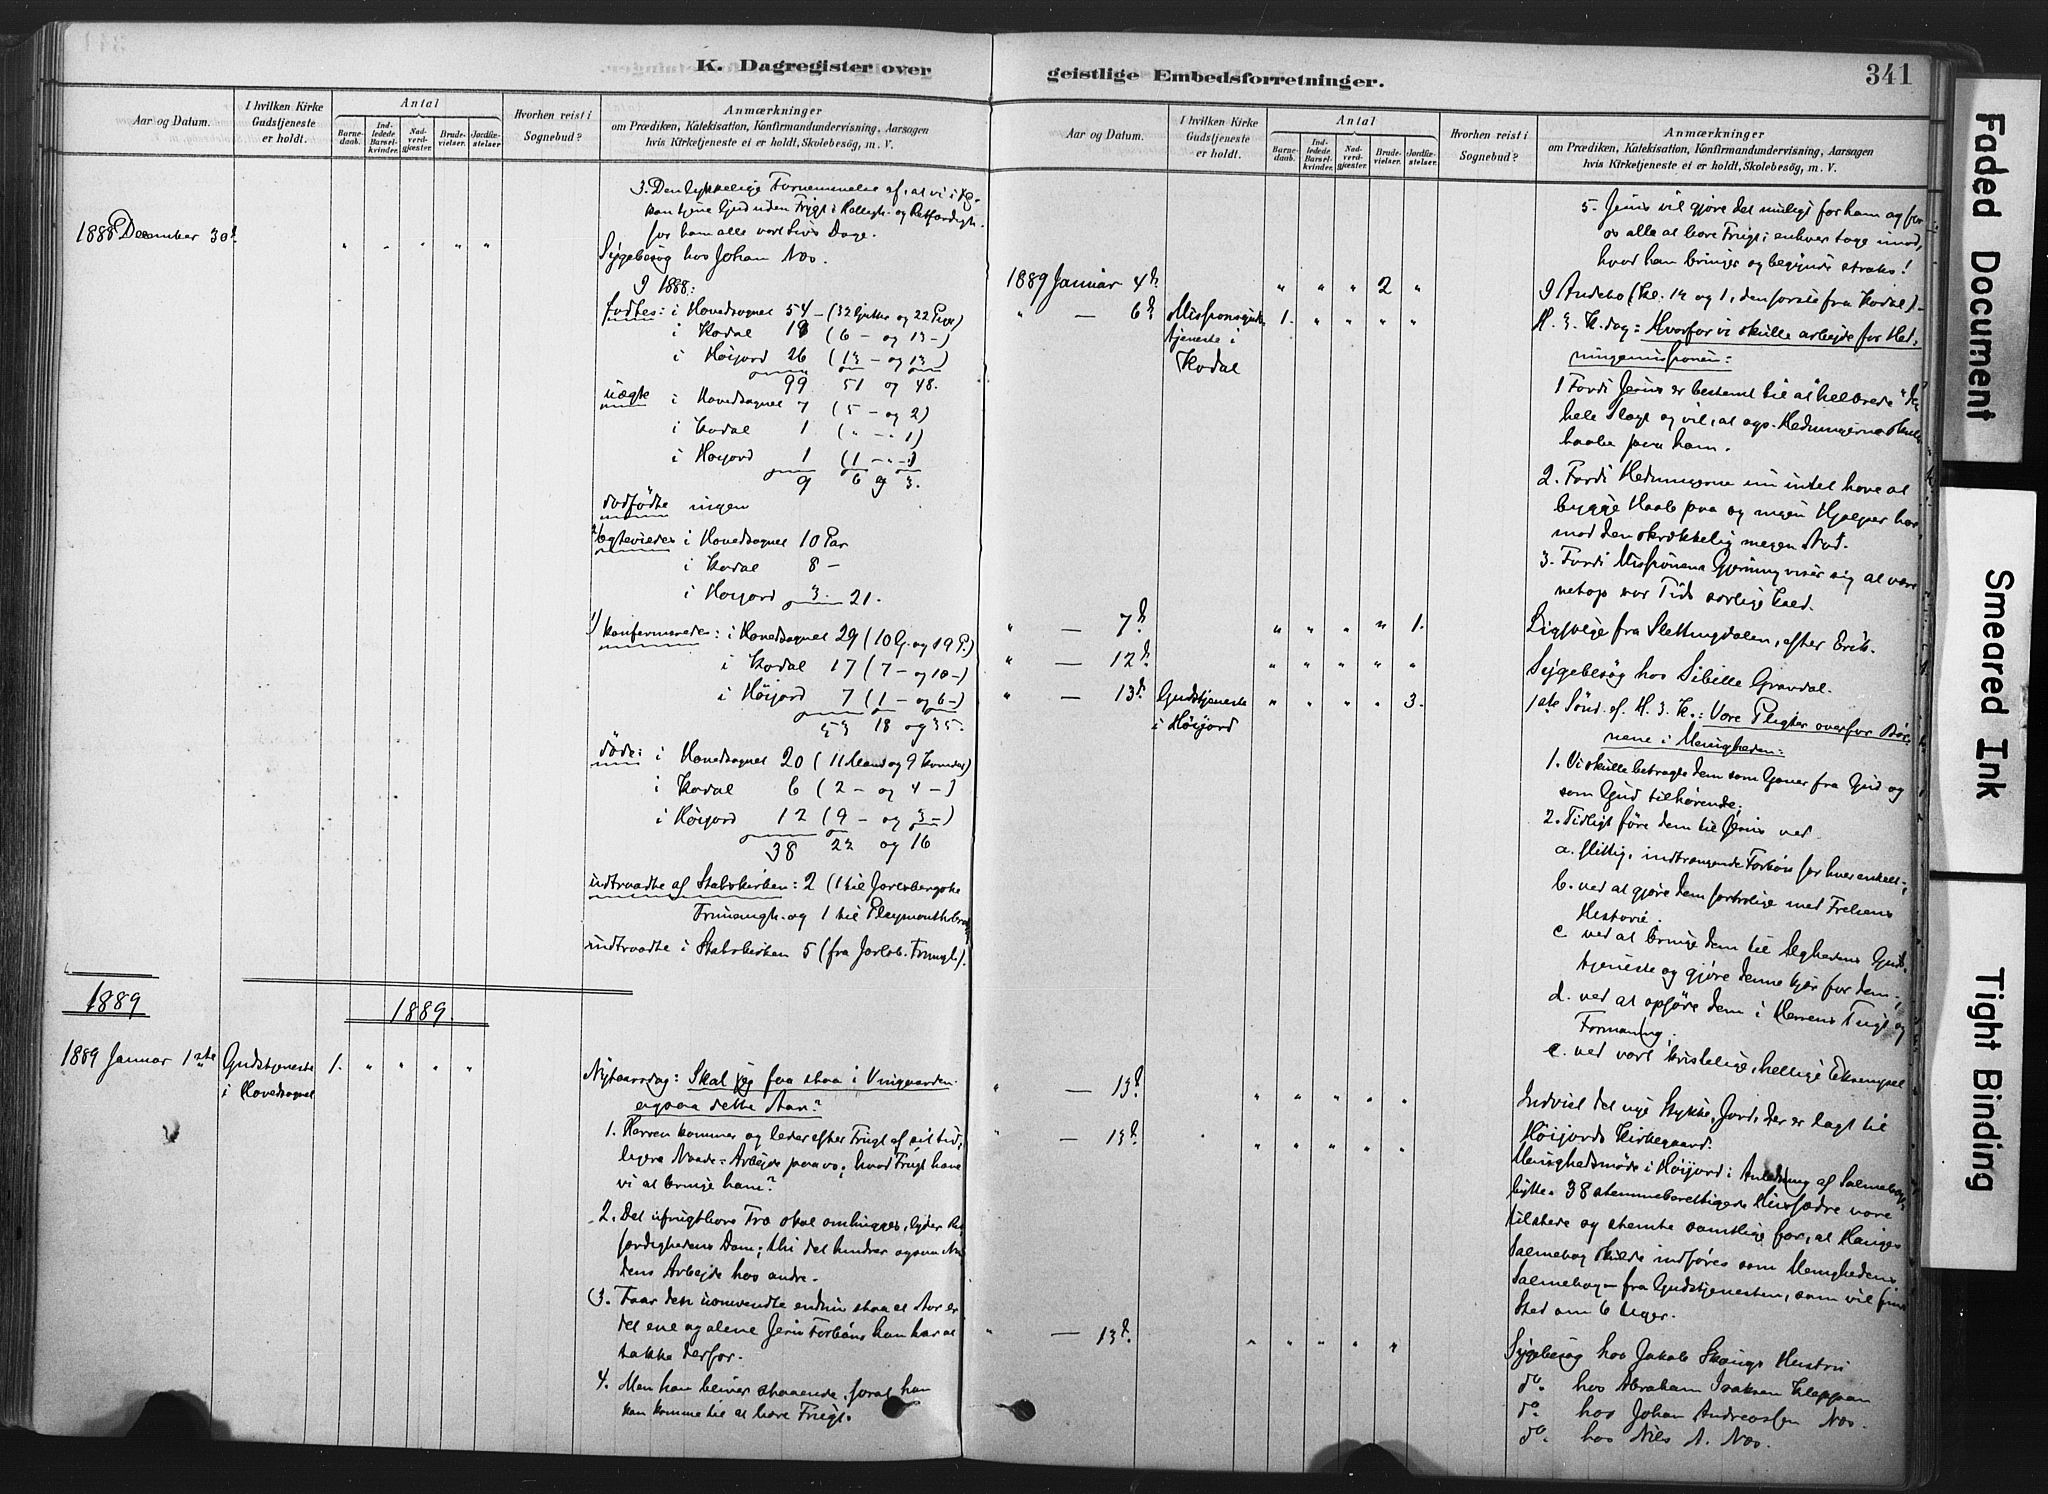 K. Dagregister over
Aar og Datum.
I hvilken Kirke Gudstjeneste er holdt.
Antal
Barnedaab.
Indledede Barselkvinder.
Nadverdgjæster.
Brudevielser.
Jordfæstelser
Hvorhen reist i Sognebud?
Anmærkninger
om Prædiken, Katekisation, Konfirmandundervisning, Aarsagen
hvis Kirketjeneste ei er holdt, Skolebesøg, m. V.
3. Den lykkelige Fornemmelse af, at vi i
kan tjene Gud uden Frygt i Helligh. og Retfærdigh.
for ham alle vort Livs Dage.
1888 December 30te " " " " " Sygebesøg hos Johan Næs.
I 1888:
fødtes: i Hovedsognet 54 – (32 Gutter og 22 Piger)
i Kodal 19 (6 – og 13 –)
i Høijord 26 (13 – og 13)
99 51 og 48.
uægte i Hovedsognet 7 (5 – og 2)
i Kodal 1 (" – " 1)
i Høijord 1 (1 – " –)
9 6 og 3.
dødfødte ingen
ægteviedes i Hovedsognet 10 Par
i Kodal 8 –
i Høijord 3. 21.
konfirmerede: i Hovedsognet 29 (10 G. og 19 P.)
i Kodal 17 (7 – og 10 –)
i Høijord 7 (1 – og 6 –)
53 18 og 35.
døde: i Hovedsognet 20 (11 Mænd og 9 Kvinder)
i Kodal 6 (2 – og 4 –)
i Høijord 12 (9 – og 3 –)
38 22 og 16
udtraadte af Statskirken: 2 (1 til Jarlsbergske
Frimenigh. og 1 til Pleymouthbr
indtraadte i Statskirken 5 (fra Jarlsb. Frimgh.)
1889
1889.
1889 Januar 1ste Gudstjeneste i Hovedsognet 1. " " " "
Nytaarsdag: Skal jeg faa staa i Vingaarden
ogsaa dette Aar?
1. Herren kommer og leder efter Frugt af sit tid-
ligere Naade-Arbejde paa os; hvad Frugt have
vi at bringe ham?
2. Det ufrugtbare Træ skal omhugges, lyder Ret-
færdighedens Dom; thi det hindrer ogsaa Naa-
dens Arbejde hos andre.
3. Faar den uomvendte endnu staa et Aar er
det ene og alene Jesu Forbøn han har at
takke derfor.
4. Men han bliver staaende, forat han
kan komme til at bære Frugt.
geistlige Embedsforretninger.
341
Aar og Datum.
I hvilken Kirke Gudstjeneste er holdt.
Antal
Barnedaab.
Indledede Barselkvinder.
Nadverdgjæster.
Brudevielser.
Jordfæstelser.
Hvorhen reist i Sognebud?
Anmærkninger
om Prædiken, Katekisation, Konfirmandundervisning, Aarsagen
hvis Kirketjeneste ei er holdt, Skolebesøg, m. V.
5. Jesus vil gjøre det muligt for ham og for
os alle at bære Frugt; enhver tage imod,
hvad han bringer og begynde straks!
1889 Januar 4de " " " 2 " I Andebo (Kl. 12 og 1, den første fra Kodal).
" – 6te Missionsgudstjeneste i Kodal 1. " " " "
H. 3. K. dag: Hvorfor vi skulle arbejde for Hed-
ningemissionen:
1 Fordi Jesus er bestemt til at "helbrede" den
hele Slægt og vil, at ogs. Hedningerne skulle
haabe paa ham.
2. Fordi Hedningerne nu intet have at
bygge Haab paa og ingen Hjælper har
mod den skrækkelig megen Nød.
3. Fordi Missionens Gjerning viser sig at være
netop vor Tids særlige Kald.
" – 7de " " " " 1. Ligfølge fra Slettingdalen, efter Erik.
" – 12te " " " " " Sygebesøg hos Sibille Gravdal.
" – 13de Gudstjeneste i Høijord " " " " 3.
1ste Sønd. ef. H. 3. K.: Vore Pligter overfor Bør-
nene i Menigheden:
1. Vi skulle betragte dem som Gaver fra Gud og
som Gud tilhørende;
2. Tidligt føre dem til Jesus ved
a. flittig, indtrængende Forbøn for hver enkelt;
b. ved at gjøre dem fortrolige med Frelsens
Historie.
c. ved at bringe dem til Mghedens Guds-
tjeneste og gjøre denne kjær for dem;
d. ved at opføre dem i Herrens Tugt og
Formaning;
e. ved vort kristelige, hellige Eksempel
" – 13de " " " " " Indviet det nye Stykke Jord, der er lagt til
Høijords Kirkegaard.
" – 13de " " " " " Menighedsmøde i Høijord i Anledning af Salmebog-
bytte. 38 stemmeberettigede Husfædre vare
tilstede og stemte samtlige for, at Hauges
Salmebog skulde indføres som Menighedens
Salmebog fra Gudstjenesten, som vil finde
Sted om 6 Uger.
" – 13de " " " " Sygebesøg hos Jakob Skaugs Hustru
do. hos Abraham Isaksen Kleppan
do. hos Johan Andreassen Næs.
do. hos Nils A. Næs.
Faded Document
Smeared Ink
Tight Binding